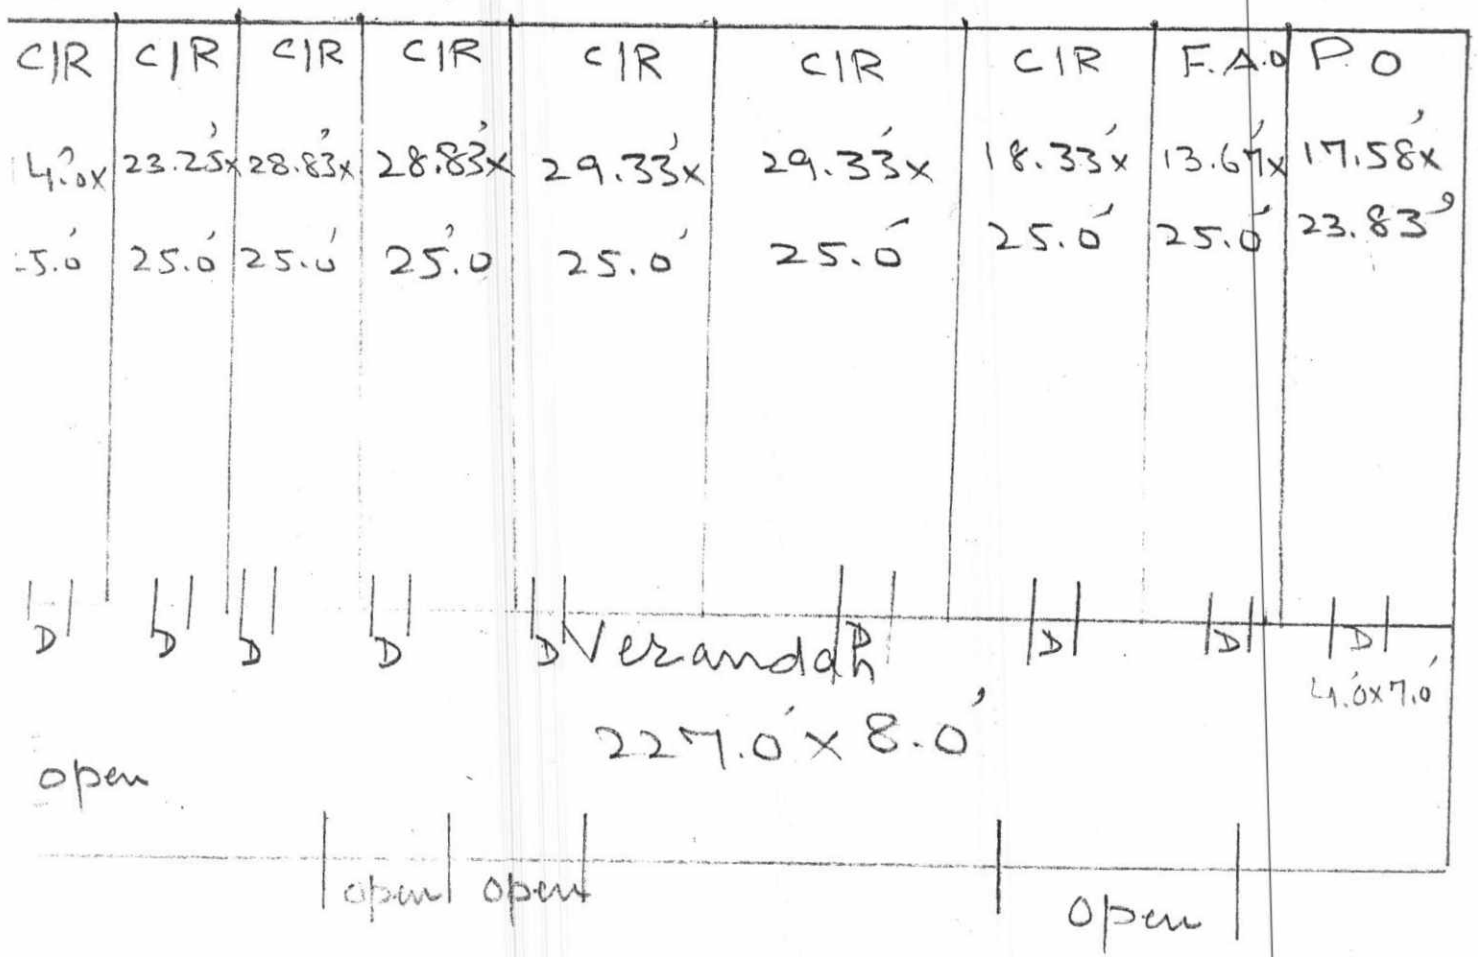 C/R C/R C/R C/R C/R C/R C/R F.A.O P.O
4.0x 23.25'x 28.83'x 28.83'x 29.33'x 29.33'x 18.33'x 13.67'x 17.58'x
5.0' 25.0' 25.0' 25.0' 25.0' 25.0' 25.0' 25.0' 23.83'
D D D D D D D D D
Verandah 4.0'x7.0'
227.0'x8.0'
open
open open open